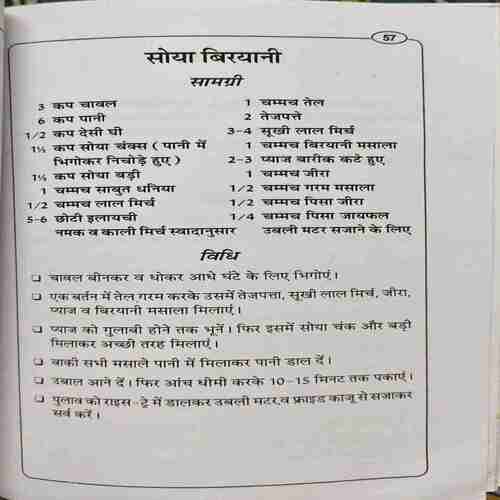 57
सोया बिरयानी
सामग्री
3 कप चावल
6 कप पानी
1/2 कप देसी घी
1½ कप सोया चंक्स ( पानी में
भिगोकर निचोड़े हुए )
1½ कप सोया बड़ी
1 चम्मच साबुत धनिया
1/2 चम्मच लाल मिर्च
5-6 छोटी इलायची
नमक व काली मिर्च स्वादानुसार
1 चम्मच तेल
2 तेजपत्ते
3-4 सूखी लाल मिर्च
1 चम्मच बिरयानी मसाला
2-3 प्याज बारीक कटे हुए
1 चम्मच जीरा
1/2 चम्मच गरम मसाला
1/2 चम्मच पिसा जीरा
1/4 चम्मच पिसा जायफल
उबली मटर सजाने के लिए
विधि
❑ चावल बीनकर व धोकर आधे घंटे के लिए भिगोएं।
❑ एक बर्तन में तेल गरम करके उसमें तेजपत्ता, सूखी लाल मिर्च, जीरा,
प्याज व बिरयानी मसाला मिलाएं।
❑ प्याज को गुलाबी होने तक भूनें। फिर इसमें सोया चंक और बड़ी
मिलाकर अच्छी तरह मिलाएं।
❑ बाकी सभी मसाले पानी में मिलाकर पानी डाल दें।
❑ उबाल आने दें। फिर आंच धीमी करके 10-15 मिनट तक पकाएं।
❑ पुलाव को राइस-ट्रे में डालकर उबली मटर व फ्राइड काजू से सजाकर
सर्व करें।